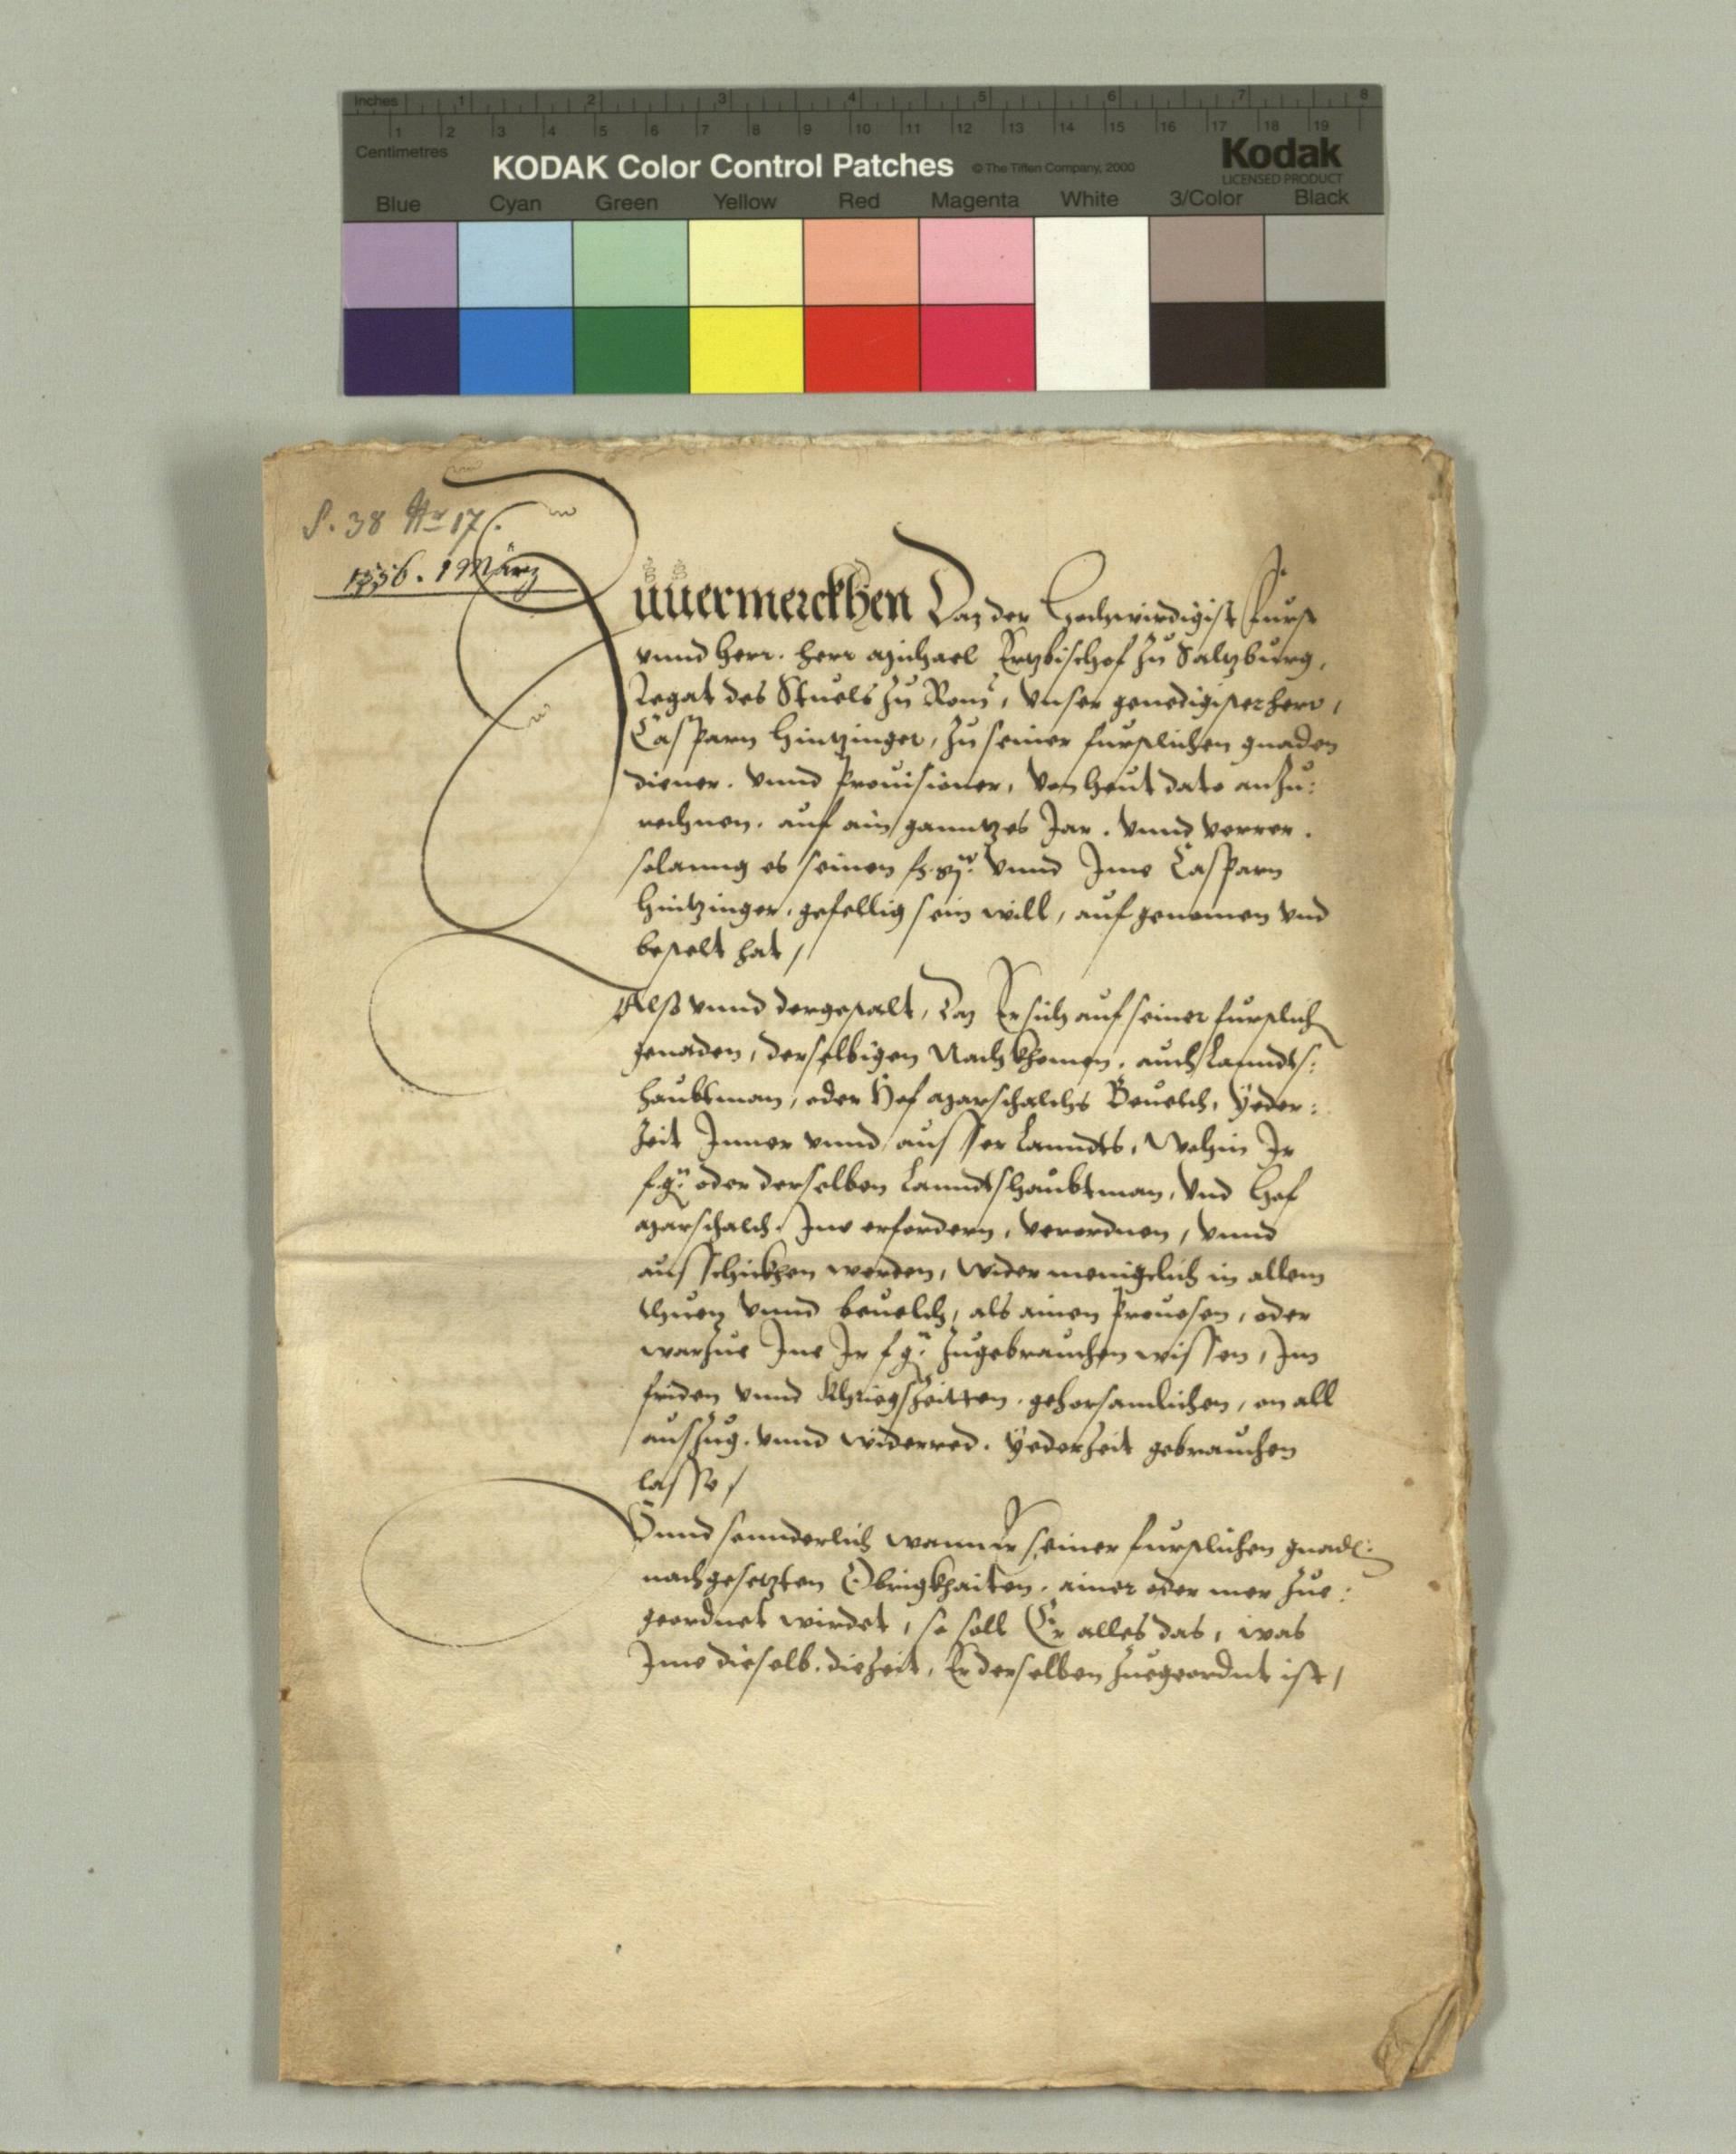 Inches 1 2 3 4 5 6 7 8
1 2 3 4 5 6 7 8 9 10 11 12 13 14 15 16 17 18 19
Centimetres
KODAK Color Control Patches © The Tiffen Company, 2000 Kodak
LICENSED PRODUCT
Blue Cyan Green Yellow Red Magenta White 3/Color Black
S. 38 Nr 17.
1556. 1 März
Zuuermerckhen Daz der Hochwirdigist Furst
vnnd herr. herr Michael Ertzbischof zu Saltzburg,
Legat des Stuels zu Rom, vnser genedigister herr,
Casparn Hintzinger, zu seiner furstlichen gnaden
diener. vnnd Prouisioner, von heut dato anzu:
rechnen. auf ain ganntzes Jar. vnnd verrer.
solanng es seinen f. g. vnnd Ime Casparn
Hintzinger, gefellig sein will, aufgenomen vnd
bestelt hat /
Alß vnnd dergestalt, Daz Er sich auf seiner furstlich
genaden, derselbigen Nachkhomen. auch Lanndts:
haubtman, oder Hof Marschalchs Beuelch, Yeder:
zeit Inner vnnd ausser Lanndts, Wohin Ir
f g: oder derselben Lanndtshaubtman, vnd Hof
Marschalch. Ine erfordern, verordnen, vnnd
ausschickhen werden, wider menigclich in allem
thuen vnnd beuelch, als ainen Prouosen, oder
warzue Ine Ir f g: zugebrauchen wissen, Im
friden vnnd Khriegszeitten. gehorsamlichen, on all
auszug. vnnd widerred. Yederzeit gebrauchen
lasse /
Vnnd sonnderlich wann Er seiner furstlichen gnad:
nachgesetzten Obrigkhaiten. ainer oder mer zue:
geordnet wirdet, so soll Er alles das, was
Ime dieselb. die zeit, Er derselben zuegeordnt ist,